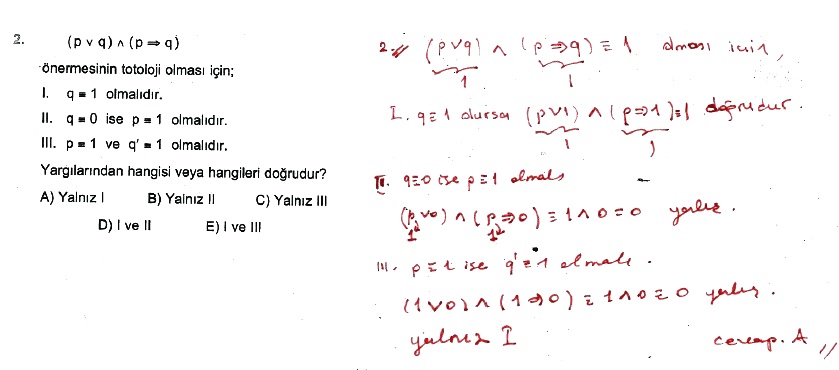 2. (p ∨ q) ∧ (p ⇒ q)
önermesinin totoloji olması için;
I. q ≡ 1 olmalıdır.
II. q ≡ 0 ise p ≡ 1 olmalıdır.
III. p ≡ 1 ve q' ≡ 1 olmalıdır.
Yargılarından hangisi veya hangileri doğrudur?
A) Yalnız I B) Yalnız II C) Yalnız III
D) I ve II E) I ve III
2. (p∨q) ∧ (p⇒q) ≡ 1 olması için,
1 1
I. q≡1 olursa (p∨1) ∧ (p⇒1)≡1 doğrudur.
1 1
II. q≡0 ise p≡1 olmalı
(p∨0) ∧ (p⇒0) ≡ 1∧0≡0 yanlış.
1 1
III. p≡1 ise q'≡1 olmalı.
(1∨0) ∧ (1⇒0) ≡ 1∧0≡0 yanlış.
yalnız I cevap. A